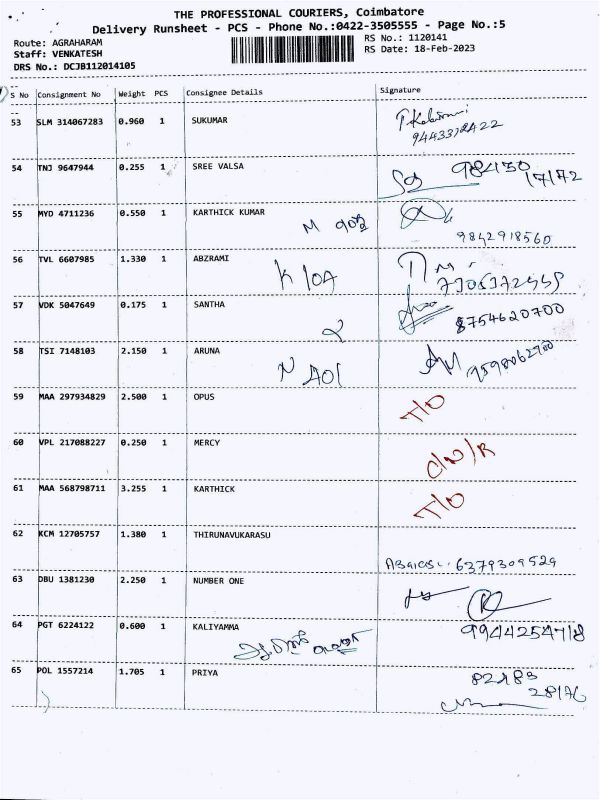 THE PROFESSIONAL COURIERS, Coimbatore
Delivery Runsheet - PCS - Phone No.:0422-3505555 - Page No.:5
Route: AGRAHARAM
Staff: VENKATESH
DRS No.: DCJB112014105
RS No.: 1120141
RS Date: 18-Feb-2023
S No Consignment No Weight PCS Consignee Details Signature
53 SLM 314067283 0.960 1 SUKUMAR
54 TNJ 9647944 0.255 1 SREE VALSA
55 MYD 4711236 0.550 1 KARTHICK KUMAR
9842918560
56 TVL 6607985 1.330 1 ABZRAMI
K 10A
57 VDK 5047649 0.175 1 SANTHA
8754620700
58 TSI 7148103 2.150 1 ARUNA
N A01
59 MAA 297934829 2.500 1 OPUS
T/O
60 VPL 217088227 0.250 1 MERCY
C/N/R
61 MAA 568798711 3.255 1 KARTHICK
T/O
62 KCM 12705757 1.380 1 THIRUNAVUKARASU
6379309529
63 DBU 1381230 2.250 1 NUMBER ONE
64 PGT 6224122 0.600 1 KALIYAMMA
9944254718
65 POL 1557214 1.705 1 PRIYA